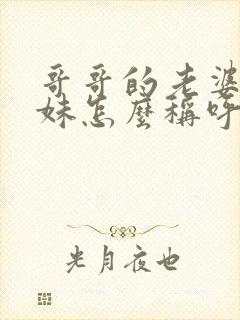 哥哥的老婆
妹怎麼稱呼
光月夜也